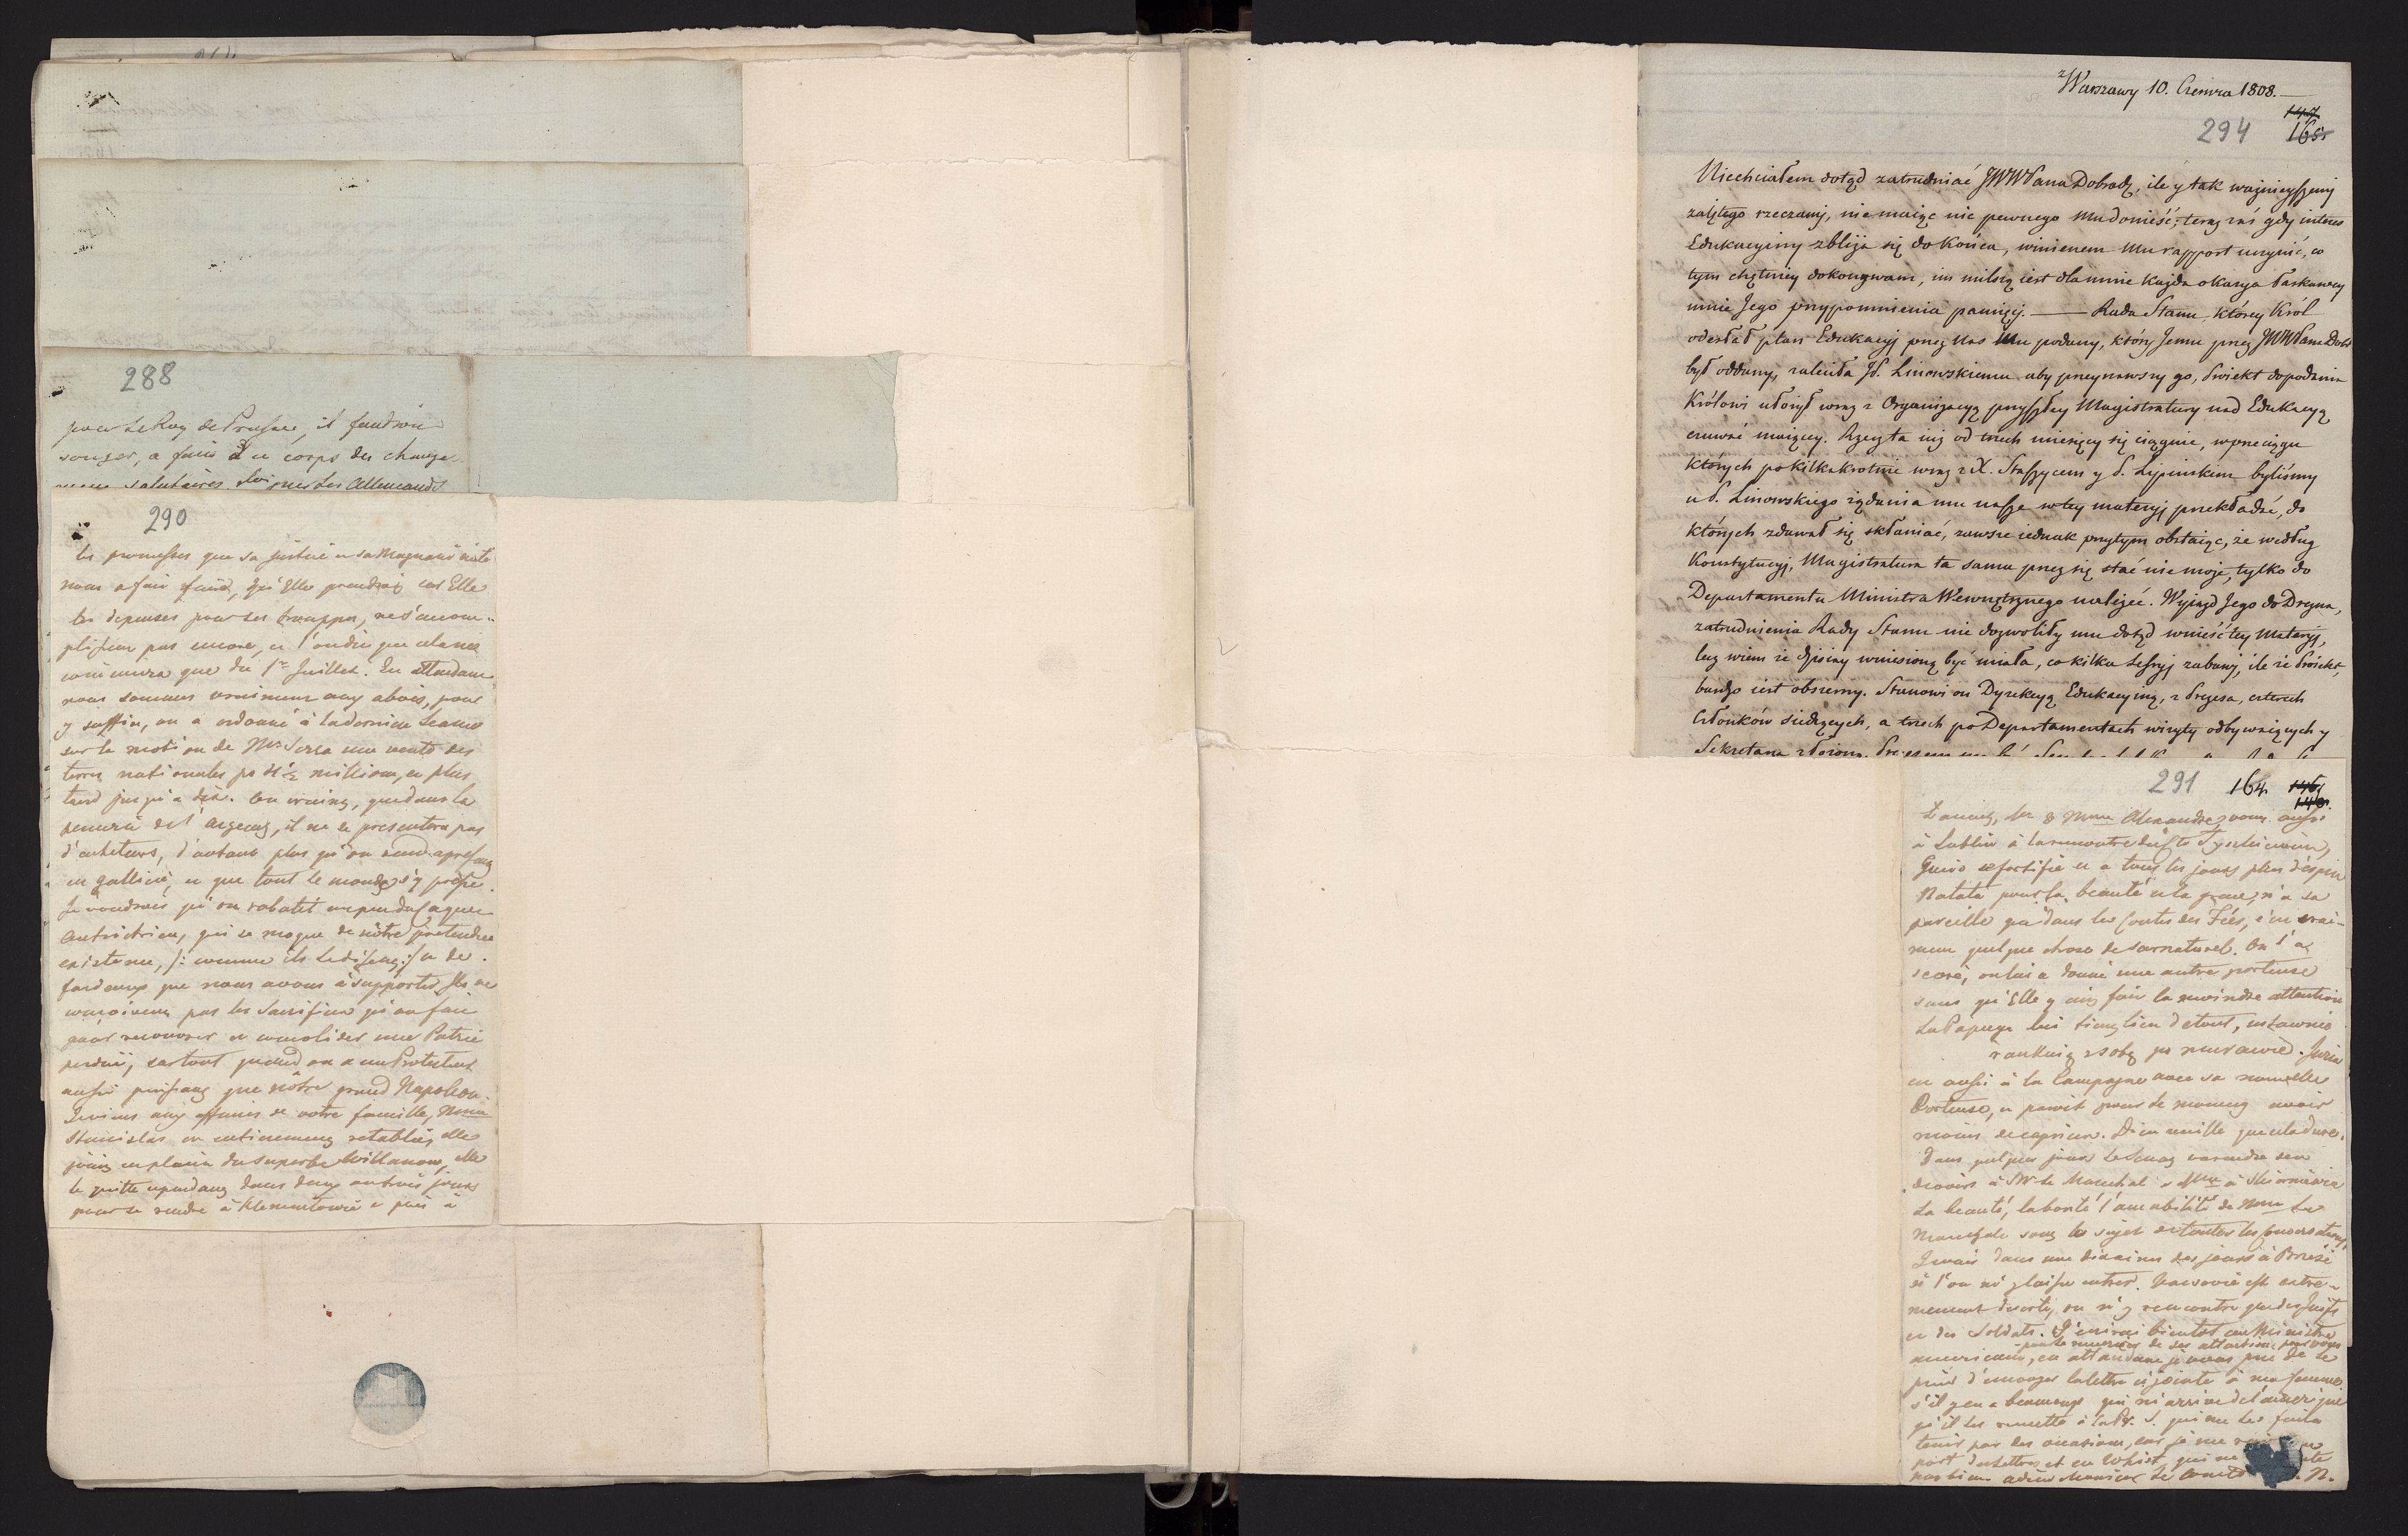 288
pour le Roy de Prusse, il faudroit
songer, a faire à ce corps des change-
salutaires. les Allemands
290
les promesses que sa justice et sa Magnanimité
nous a fait faire, qu'Elle prendroit sur Elle
les depenses pour les trouppes, ne s'accom-
plissent pas encore, et l'on dit que cela ne
commencera que du 1r Juillet. En attendant
nous sommes vraiment aux abois, pour
y suffire, on a ordonné à la derniere Seance
sur la motion de Mr Serra une vente des
terres nationales millions, et plus
tard jusqu'a dix. On craint, que dans la
penurie de l'argent, il ne se presentera pas
d'acheteurs, d'autant plus qu'on vend apresent
en Gallicie, et que tout le monde s'y presse.
Je voudrois qu'on rabatit un peu du caquet
Autrichien, qui se moque de nôtre pretendue
existence, /: comme ils le disent :/ et de
fardeaux que nous avons à supporter, Ils ne
conçoivent pas les Sacrifices qu'on fait
pour recouvrer et consolider une Patrie
perdue, surtout quand on a un Protecteur
aussi puissant que nôtre grand Napoleon.
Je viens aux affaires de votre famille, Mme
Stanislas est entierement retablie, elle
jouit en plein du superbe Willanow, elle
le quitte cependant dans deux ou trois jours
pour se rendre à Klementowice et puis à
z Warszawy 10. Czerwca 1808.
147
294 165
Niechciałem dotąd zatrudniać JWWPana Dobrodz, ile y tak ważnieyszemi
zaiętego rzeczami, nie maiąc nic pewnego Mu donieść; teraz zaś gdy interes
Edukacyiny zbliża się do Końca, winienem Mu rapport uczynić, co
tym chętniey dokonywam, im milszą iest dla mnie każda okazya łaskawey
mnie Jego przypomnienia pamięci. — Rada Stanu, którey Król
odesłał plan Edukacyi przez Nas Mu podany, który Jemu przez JWWPana Dobr
był oddany, zaleciła JP. Linowskiemu aby przeyrzawszy go, Proiekt do podania
Królowi ułożył wraz z Organizacyą przyszłey Magistratury nad Edukacyą
czuwać maiącey. Rzecz ta iuż od trzech miesięcy się ciągnie, w przeciągu
których po kilkakrotnie wraz z X. Staszycem y P. Lipińskim byliśmy
u P. Linowskiego żądania mu nasze w tey materyi przekładać, do
których zdawał się skłaniać, zawsze iednak przytym obstaiąc, że według
Konstytucyi, Magistratura ta sama przez się stać nie może, tylko do
Departamentu Ministra Wewnętrznego należeć. Wyjazd Jego do Drezna,
zatrudnienia Rady Stanu nie dozwoliły mu dotąd wnieść tey Materyi,
lecz wiem że dzisiay wniesioną być miała, co kilka Sessyi zabawi, ile że Proiekt,
bardzo iest obszerny. Stanowi on Dyrekcyą Edukacyiną, z Prezesa, czterech
Członków siedzących, a trzech po Departamentach wizyty odbywaiących y
Sekretarza złożoną.
291 164 146
148.
Lancut, Mr & Mme Alexandre vont aussi
à Lublin à la rencontre de
Guido se fortifie et a tous les jours plus d'esprit
Natata pour la beauté et la grace, n'a sa
pareille que dans les Contes des Fées, c'est vrai-
ment quelque chose de surnaturel. On l'a
sevré, on lui a donné une autre porteuse
sans qu'Elle y ait fait la moindre attention
La Papuga lui tient lieu de tout, ustawnie
rankuią z sobą po murawie. Juzia
est aussi à la Campagne avec sa nouvelle
Porteuse, et paroit pour le moment avoir
moins de caprices. Dieu veuille que cela dure.
Dans quelques jours le Senat va rendre ses
devoirs à Mr le Marechal et Mme à Skierniewice
La beauté, la bonté l'amabilité de Mme La
Marechale sont le sujet de toutes les conversations
Je vais dans une dixaine des jours à Brzesć
si l'on m'y laisse entrer. Varsovie est extre-
mement deserte, on n'y rencontre que des Juifs
et des Soldats. J'ecrirai bientot au Ministre
pour le remercier de ses attentions pour vous
americain, en attendant je vous prie de le
prier d'envoyer la lettre cijointe à ma femme
s'il y en a beaucoup qui m'arrive de l'amerique
qu'il les remette à la Pr. S. qui me les fera
tenir par des occasions, car je me
port des lettres et en Whist, qui me
adieu Monsieur Le Comte N.